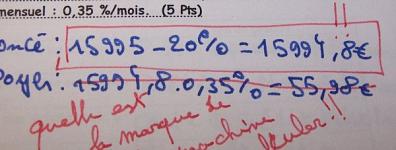 mensuel : 0,35 %/mois. (5 Pts)
oncé : 15995 - 20% = 15994,8€ !!
Payer : 15994,8 . 0,35% = 55,98€
quelle est
la marque de
machine
!!